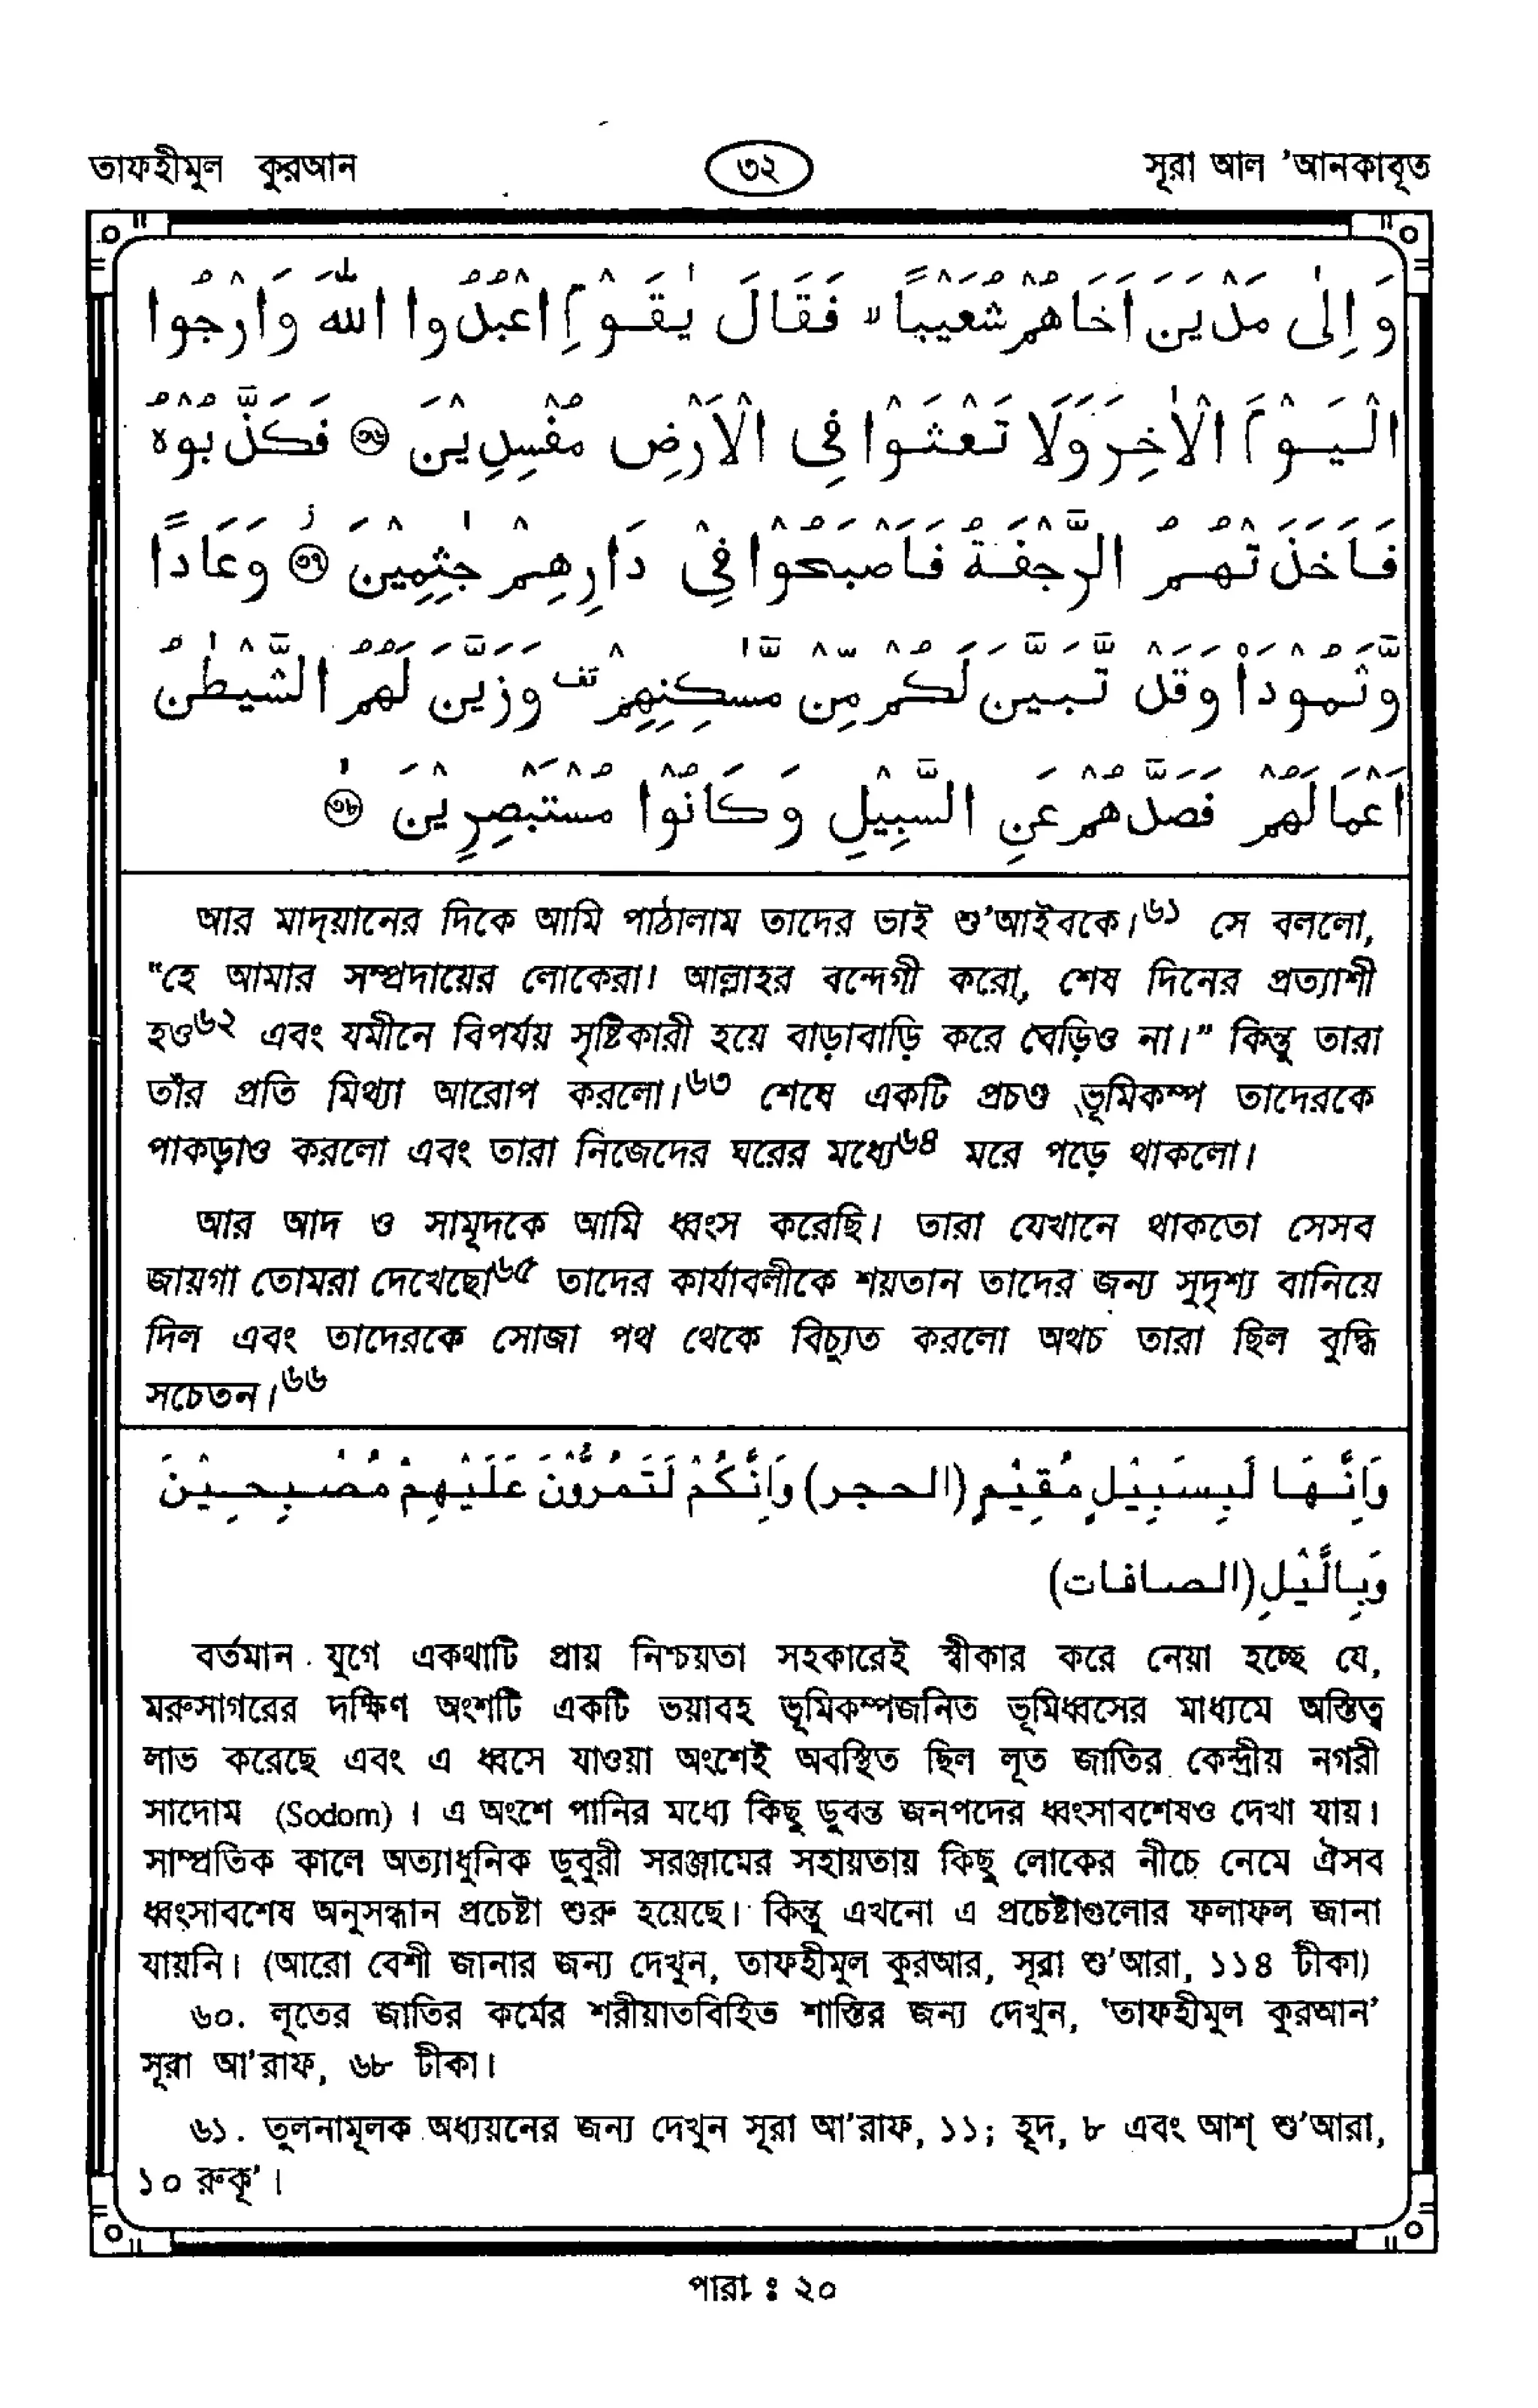 তাফহীমুল কুরআন ৩২ সূরা আল 'আনকাবূত
وَ اِلٰى مَدْيَنَ اَخَاهُمْ شُعَيْبًا ۙ فَقَالَ يٰقَوْمِ اعْبُدُوا اللّٰهَ وَارْجُوا
الْيَوْمَ الْاٰخِرَ وَلَا تَعْثَوْا فِى الْاَرْضِ مُفْسِدِيْنَ ۝٣٦ فَكَذَّبُوْهُ
فَاَخَذَتْهُمُ الرَّجْفَةُ فَاَصْبَحُوْا فِيْ دَارِهِمْ جٰثِمِيْنَ ۝٣٧ وَعَادًا
وَّثَمُوْدَا۟ وَقَدْ تَّبَيَّنَ لَكُمْ مِّنْ مَّسٰكِنِهِمْ ۗ وَزَيَّنَ لَهُمُ الشَّيْطٰنُ
اَعْمَالَهُمْ فَصَدَّهُمْ عَنِ السَّبِيْلِ وَكَانُوْا مُسْتَبْصِرِيْنَ ۝٣٨
আর মাদ্‌য়ানের দিকে আমি পাঠালাম তাদের ভাই শু'আইবকে।৬১ সে বললো,
"হে আমার সম্প্রদায়ের লোকেরা! আল্লাহর বন্দেগী করো, শেষ দিনের প্রত্যাশী
হও৬২ এবং যমীনে বিপর্যয় সৃষ্টিকারী হয়ে বাড়াবাড়ি করে বেড়িও না।" কিন্তু তারা
তাঁর প্রতি মিথ্যা আরোপ করলো।৬৩ শেষে একটি প্রচণ্ড ভূমিকম্প তাদেরকে
পাকড়াও করলো এবং তারা নিজেদের ঘরের মধ্যে৬৪ মরে পড়ে থাকলো।
আর আদ ও সামূদকে আমি ধ্বংস করেছি। তারা যেখানে থাকতো সেসব
জায়গা তোমরা দেখেছো৬৫ তাদের কার্যাবলীকে শয়তান তাদের জন্য সুদৃশ্য বানিয়ে
দিল এবং তাদেরকে সোজা পথ থেকে বিচ্যুত করলো অথচ তারা ছিল বুদ্ধি
সচেতন।৬৬
وَاِنَّهَا لَبِسَبِيْلٍ مُّقِيْمٍ (الحجر) وَاِنَّكُمْ لَتَمُرُّوْنَ عَلَيْهِمْ مُّصْبِحِيْنَ
وَبِالَّيْلِ (الصافات)
বর্তমান যুগে একথাটি প্রায় নিশ্চয়তা সহকারেই স্বীকার করে নেয়া হচ্ছে যে,
মরুসাগরের দক্ষিণ অংশটি একটি ভয়াবহ ভূমিকম্পজনিত ভূমিধ্বসের মাধ্যমে অস্তিত্ব
লাভ করেছে এবং এ ধ্বসে যাওয়া অংশেই অবস্থিত ছিল লূত জাতির কেন্দ্রীয় নগরী
সাদোম (Sodom) । এ অংশে পানির মধ্যে কিছু ডুবন্ত জনপদের ধ্বংসাবশেষও দেখা যায়।
সাম্প্রতিক কালে অত্যাধুনিক ডুবুরী সরঞ্জামের সহায়তায় কিছু লোকের নীচে নেমে ঐসব
ধ্বংসাবশেষ অনুসন্ধান প্রচেষ্টা শুরু হয়েছে। কিন্তু এখনো এ প্রচেষ্টাগুলোর ফলাফল জানা
যায়নি। (আরো বেশী জানার জন্য দেখুন, তাফহীমুল কুরআর, সূরা শু'আরা, ১১৪ টীকা)
৬০. লূতের জাতির কর্মের শরীয়াতবিহিত শাস্তির জন্য দেখুন, 'তাফহীমুল কুরআন'
সূরা আ'রাফ, ৬৮ টীকা।
৬১. তুলনামূলক অধ্যয়নের জন্য দেখুন সূরা আ'রাফ, ১১; হূদ, ৮ এবং আশ্ শু'আরা,
১০ রুকূ'।
পারা ঃ ২০